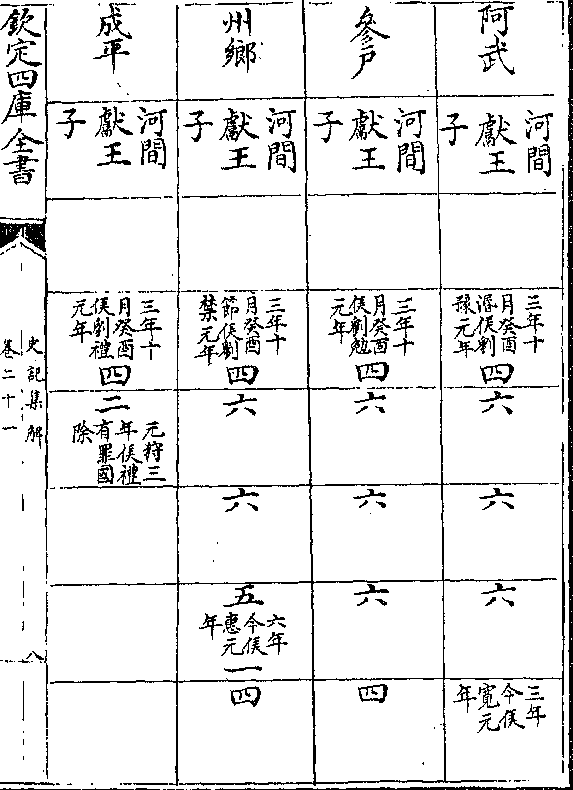 阿武
河間
獻王
子
三年十
月癸酉
湣侯劉
豫元年
四
六
六
六
三年
今侯
寛元
年
參戸
河間
獻王
子
三年十
月癸酉
侯劉勉
元年
四
六
六
六
四
州鄉
河間
獻王
子
三年十
月癸酉
節侯劉
禁元年
四
六
六
五
六年
今侯
惠元
年
一
四
成平
河間
獻王
子
三年十
月癸酉
侯劉禮
元年
四
二
元狩三
年侯禮
有罪國
除
欽定四庫全書
史記集解
卷二十一
八